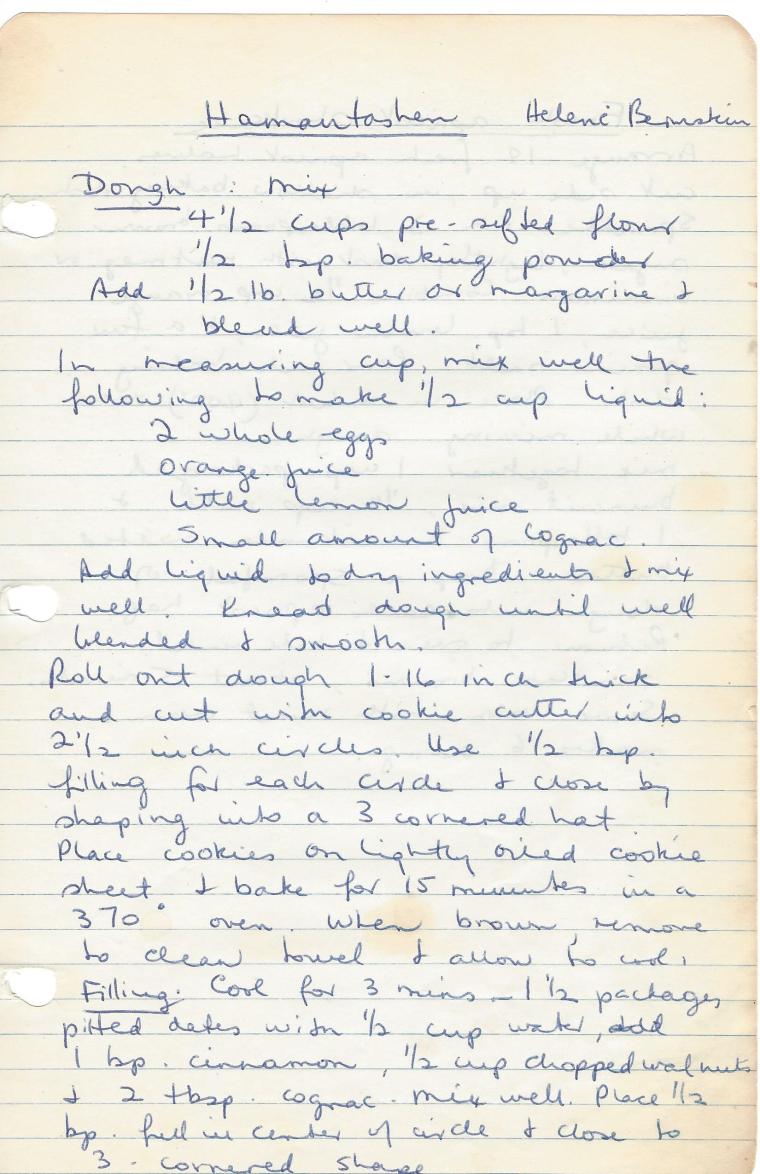 Hamantashen Helene Bernstein
Dough : Mix
4 1/2 cups pre-sifted flour
1/2 tsp. baking powder
Add 1/2 lb. butter or margarine &
blend well.
In measuring cup, mix well the
following to make 1/2 cup liquid:
2 whole eggs
orange juice
little lemon juice
Small amount of Cognac.
Add liquid to dry ingredients & mix
well. Knead dough until well
blended & smooth.
Roll out dough 1-16 inch thick
and cut with cookie cutter into
2 1/2 inch circles. Use 1/2 tsp.
filling for each circle & close by
shaping into a 3 cornered hat
Place cookies on lightly oiled cookie
sheet & bake for 15 minutes in a
370° oven. When brown, remove
to clean towel & allow to cool.
Filling. Cool for 3 mins - 1 1/2 packages
pitted dates with 1/2 cup water, add
1 tsp. cinnamon, 1/2 cup chopped walnuts
& 2 tbsp. cognac. Mix well. Place 1/2
tsp. fill in center of circle & close to
3-cornered shape